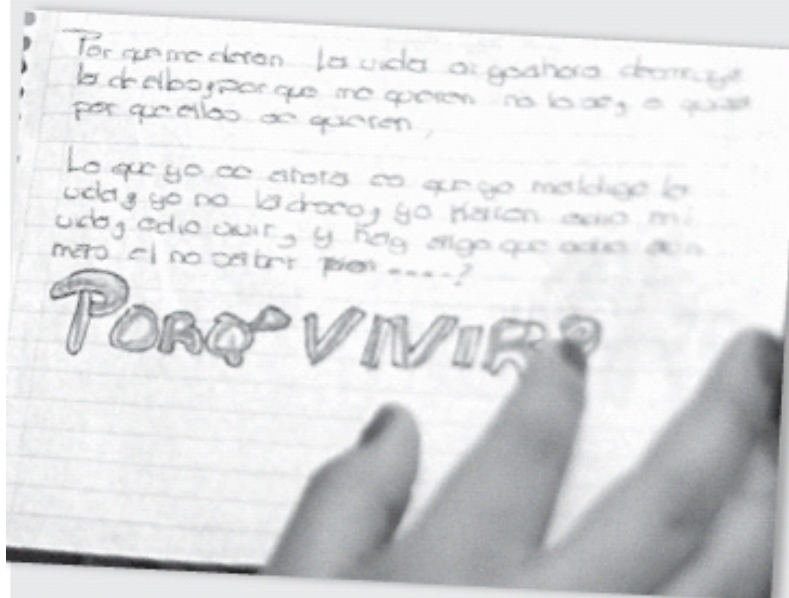 Por que me dieron la vida si yo ahora
la de ellos, por que me quieren no lo se, o quizas
por que ellos se quieren,
Lo que yo se ahora es que yo maldigo la
vida, yo no la deseo, yo odio mi
vida, odio vivir, y hay algo que odio aun
mas el no saber
PORQ' VIVIR?